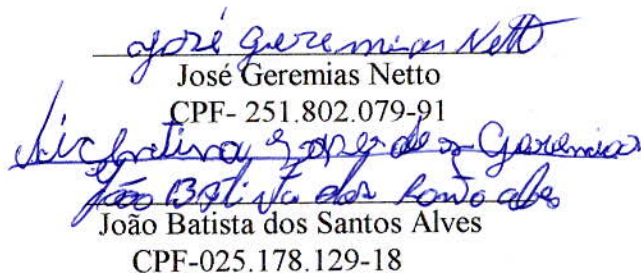 José Geremias Netto
José Geremias Netto
CPF- 251.802.079-91
Geremias
João Batista dos Santos Alves
João Batista dos Santos Alves
CPF-025.178.129-18